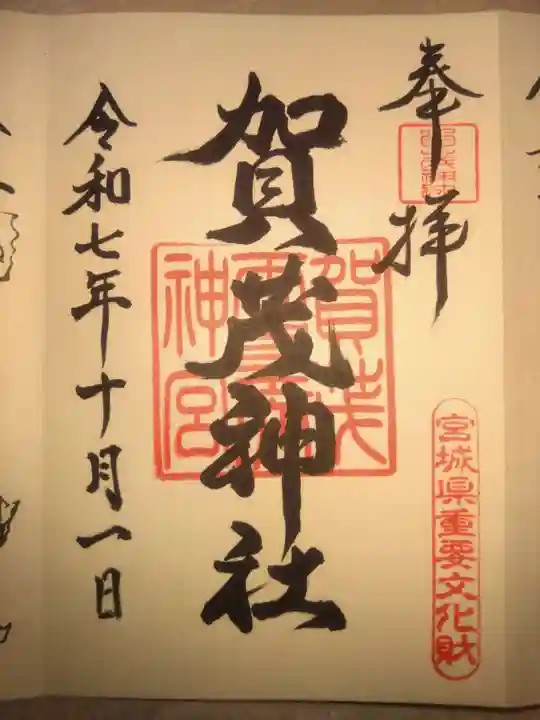 奉拝
宮城県重要文化財
賀茂神社
令和七年十月一日